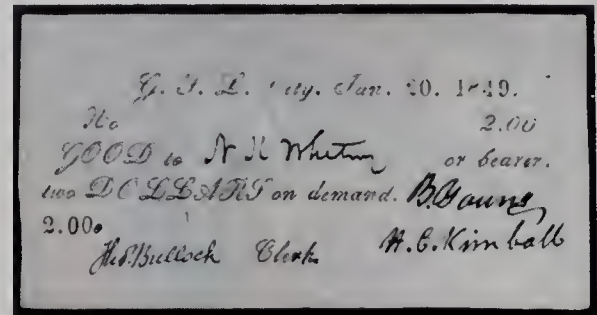 G. S. L. City. Jan. 20. 1849.
No 2.00
GOOD to N K Whitney or bearer.
two DOLLARS on demand. B. Young
2.00.
Tho. Bullock Clerk H. C. Kimball